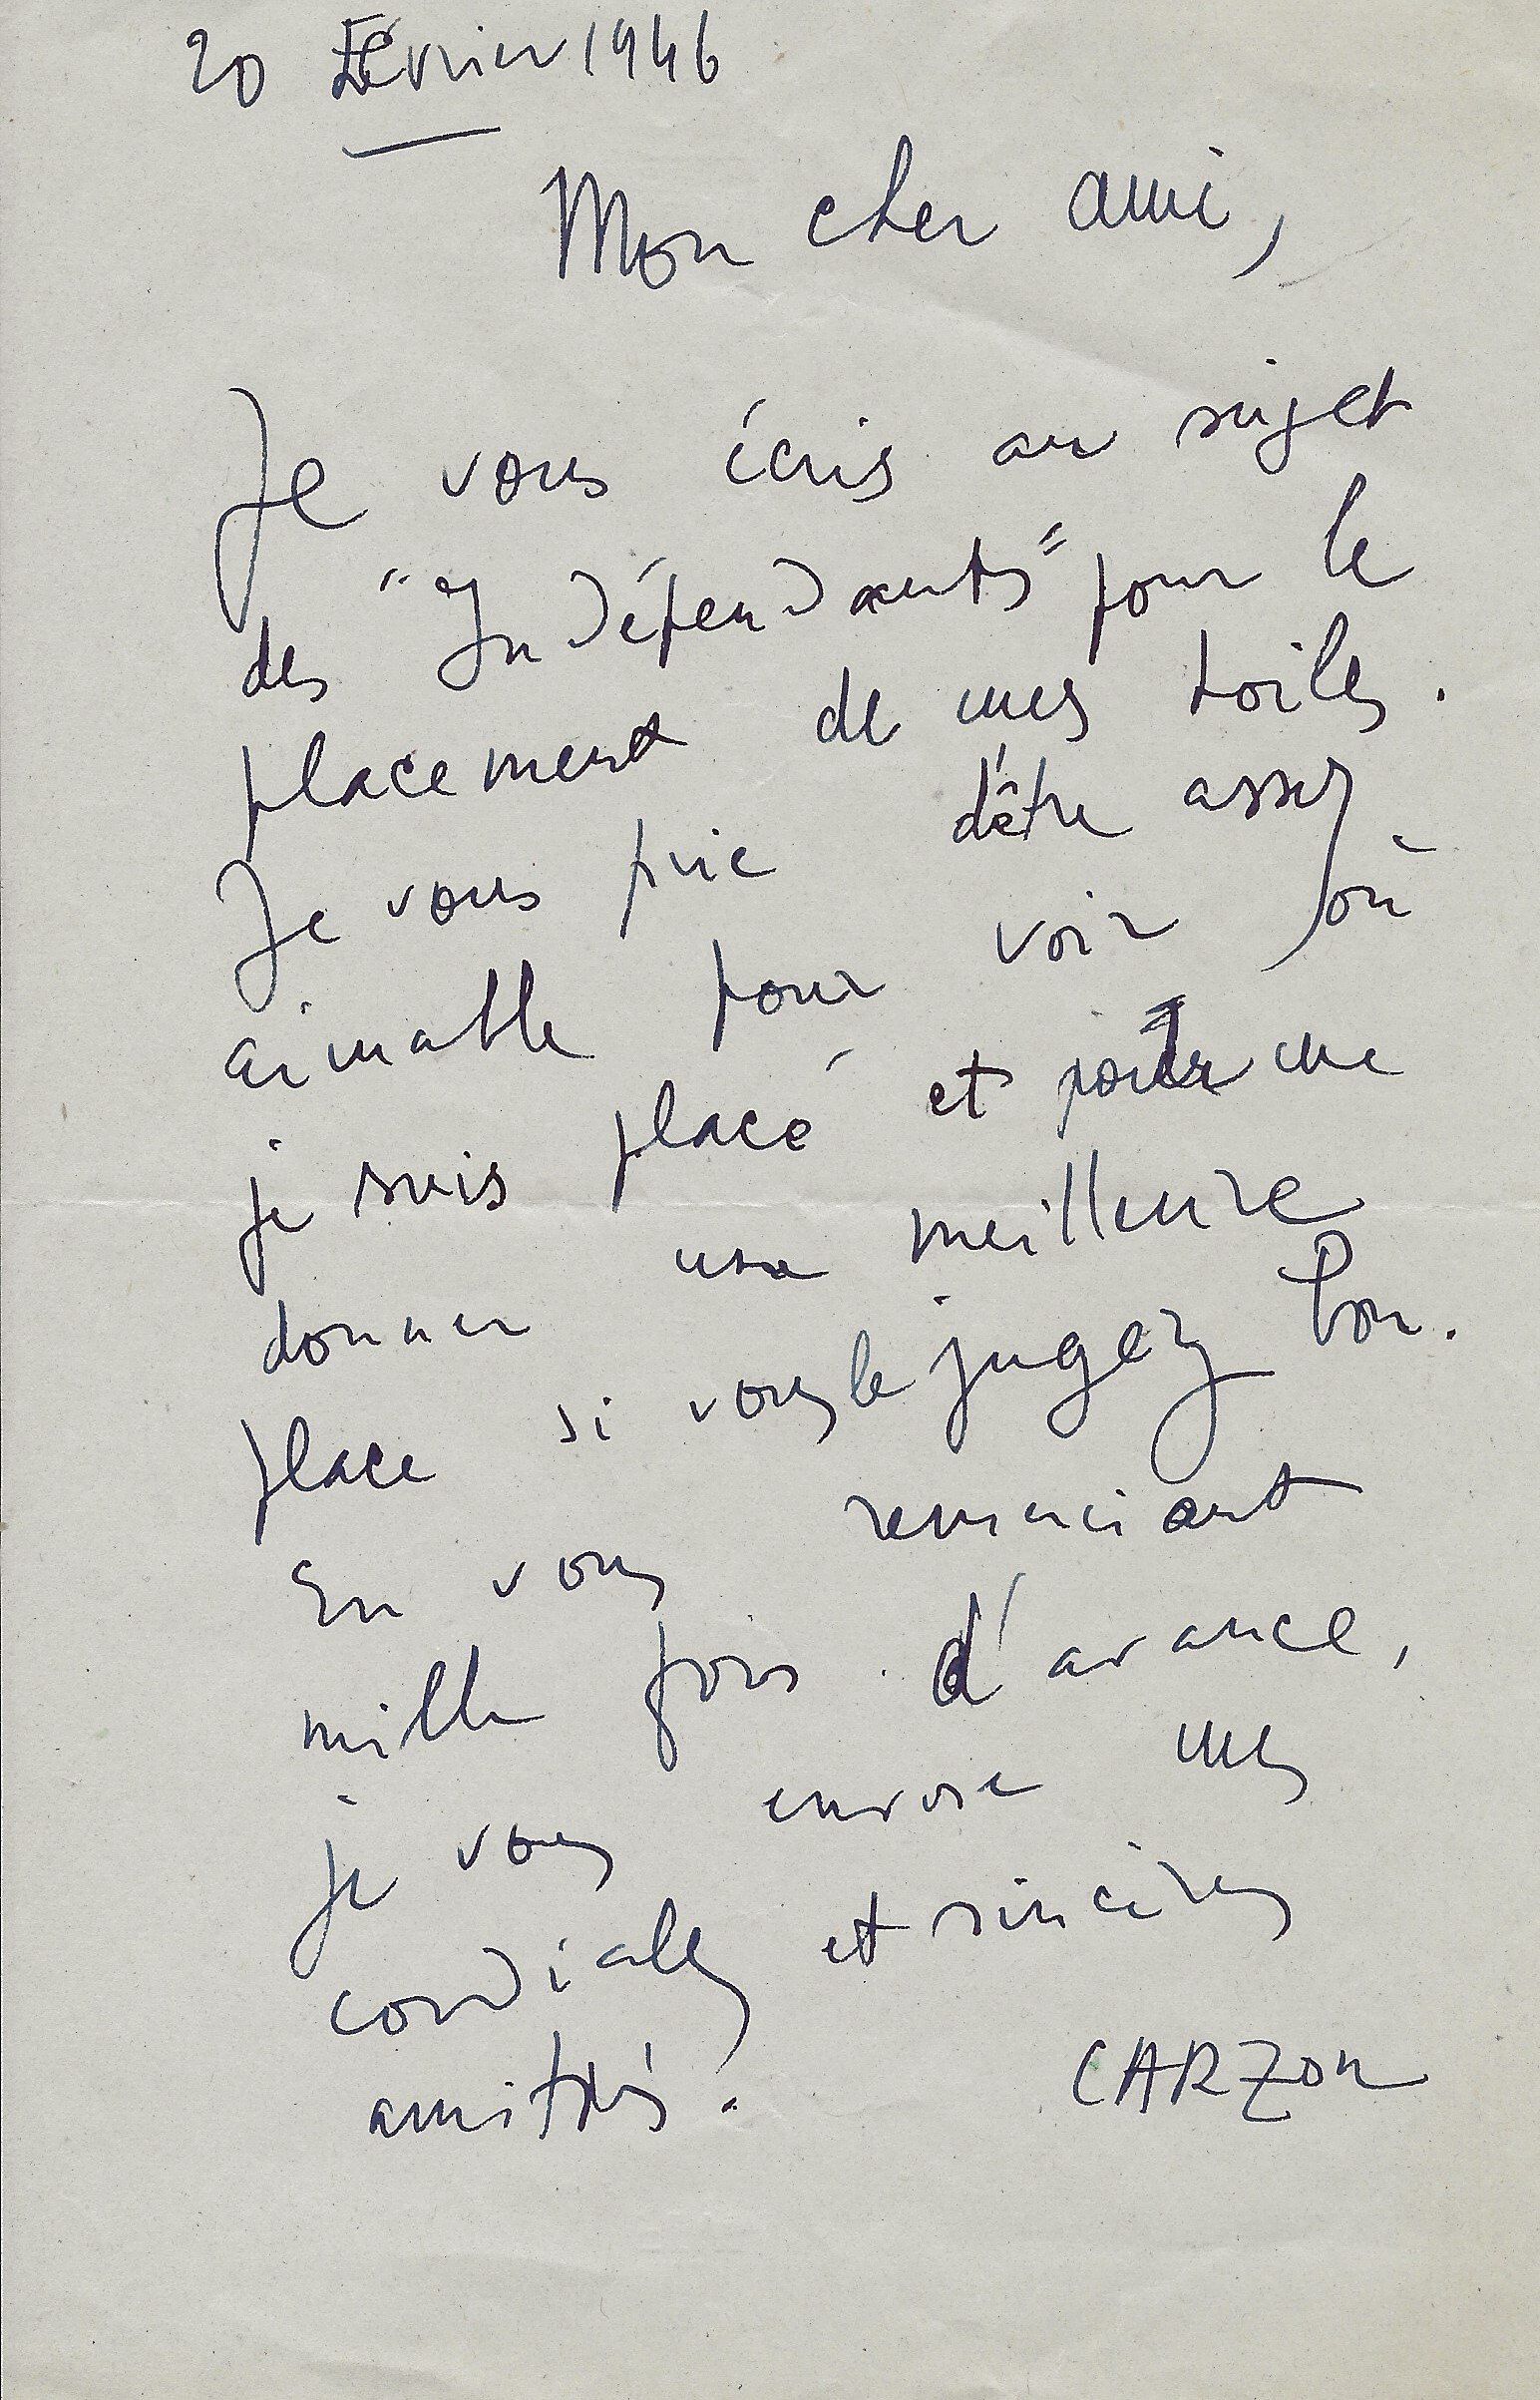 20 Février 1946
Mon cher ami,
Je vous écris au sujet
des "Indépendants" pour le
placement de mes toiles.
Je vous prie d'être assez
aimable pour voir où
je suis placé et pour me
donner une meilleure
place si vous le jugez bon.
En vous remerciant
mille fois d'avance,
je vous envoie mes
cordiales et sincères
amitiés.
CARZOU